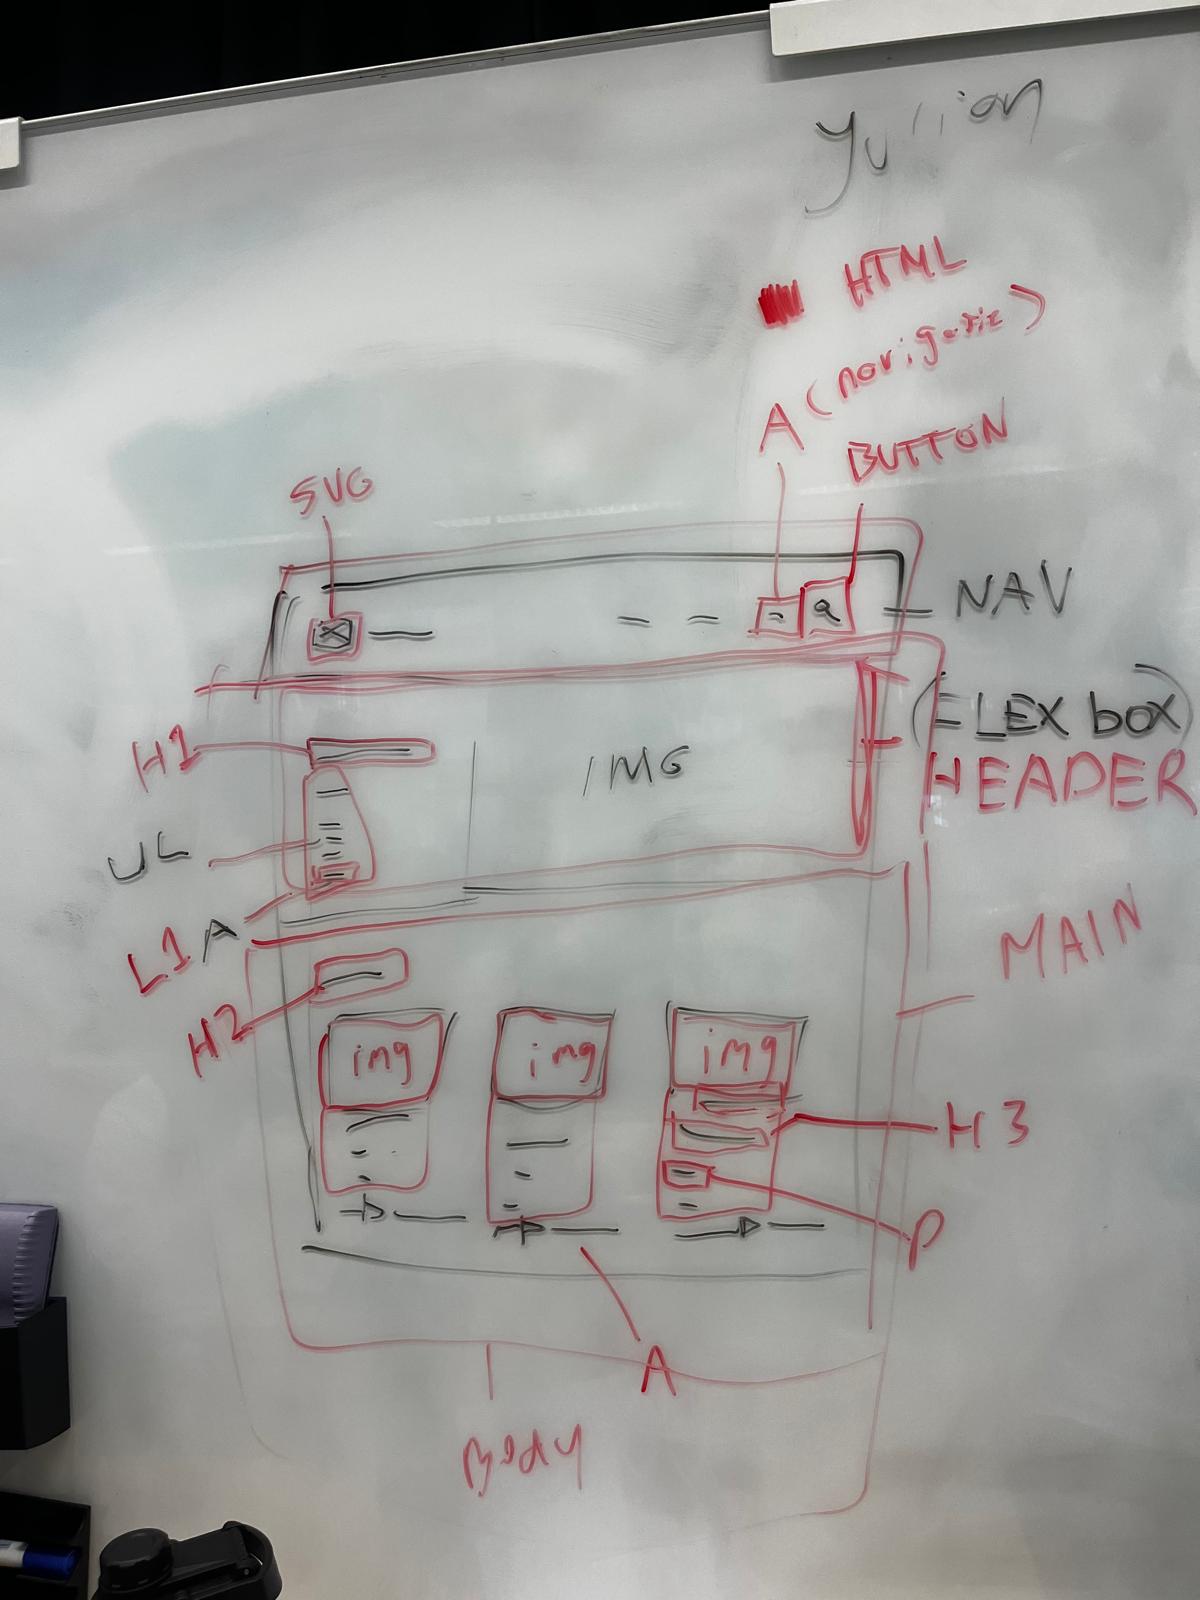 Yulian
HTML
A (navigatie)
BUTTON
SVG
NAV
(FLEX box)
HEADER
H1
IMG
UL
L1 A
MAIN
H2
img
img
img
H3
P
A
Body